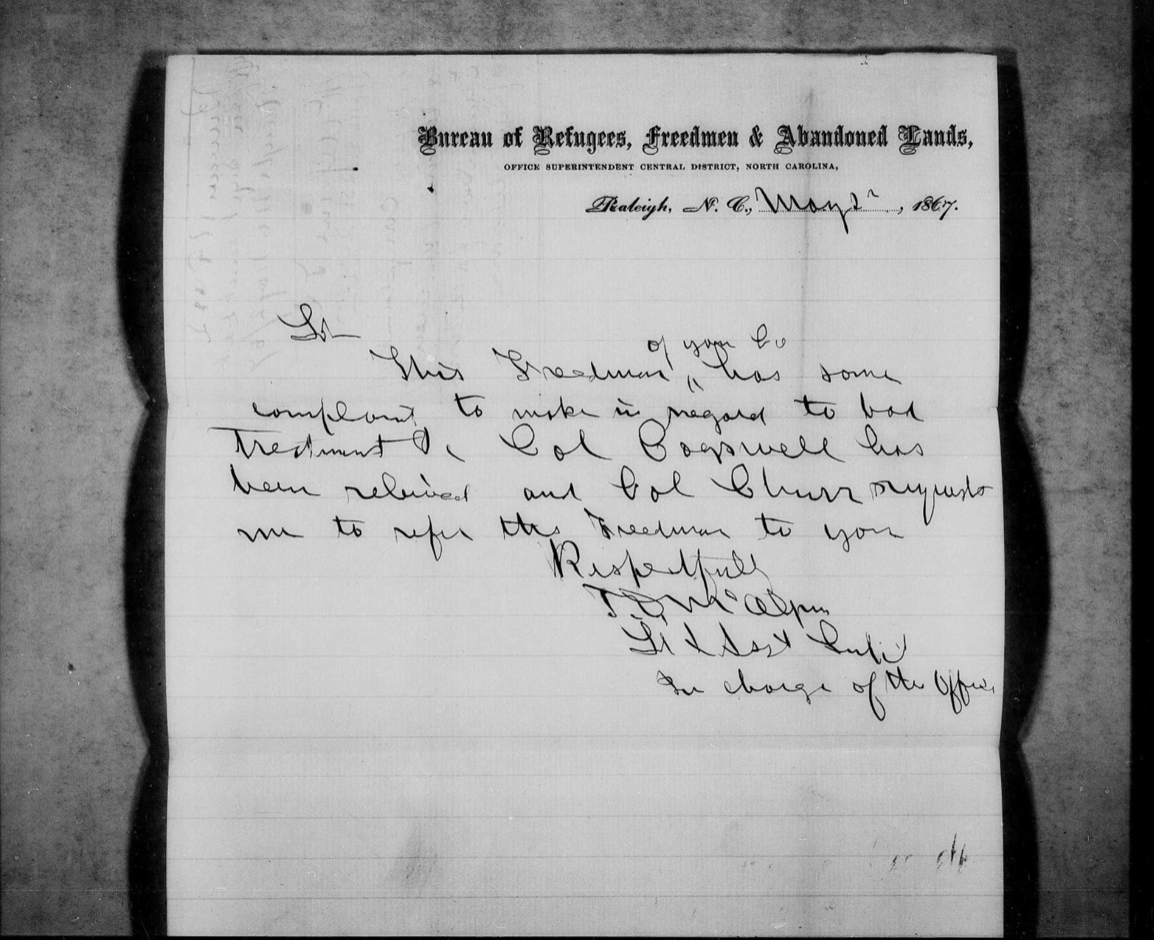 Bureau of Refugees, Freedmen & Abandoned Lands,
OFFICE SUPERINTENDENT CENTRAL DISTRICT, NORTH CAROLINA,
Raleigh, N. C., May 2", 1867.
Lt
of your Co
This Freedman " has some
complaint to make in regard to bad
Treatment &c Col Cogswell has
been relieved and Col Churr requests
me to refer this Freedman to you
Respectfully
T. D. McAlpin
Lt & Asst Supt
In charge of the Office